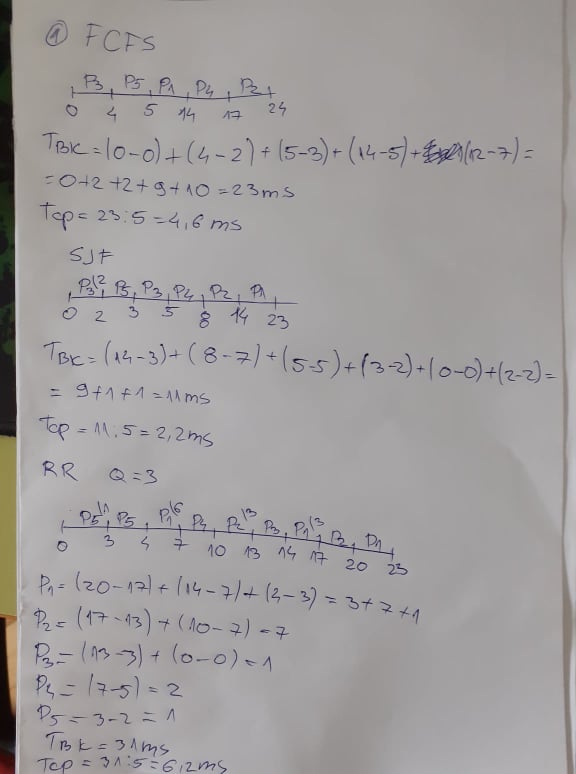 ① FCFS
P3 P5 P1 P4 P2
0 4 5 14 17 24
TBK=(0-0)+(4-2)+(5-3)+(14-5)+(12-7)=
=0+2+2+9+10=23ms
Tcp=23:5=4,6ms
SJF
P3\2 P5 P3 P4 P2 P1
0 2 3 5 8 14 23
TBK=(14-3)+(8-7)+(5-5)+(3-2)+(0-0)+(2-2)=
= 9+1+1=11ms
Tcp=11:5=2,2ms
RR Q=3
P5\1 P5 P1\6 P4 P2\3 P3 P1\3 P2 P1
0 3 4 7 10 13 14 17 20 23
P1=(20-17)+(14-7)+(4-3)=3+7+1
P2=(17-13)+(10-7)=7
P3=(13-3)+(0-0)=1
P4=(7-5)=2
P5=3-2=1
TBK=31ms
Tcp=31:5=6,2ms